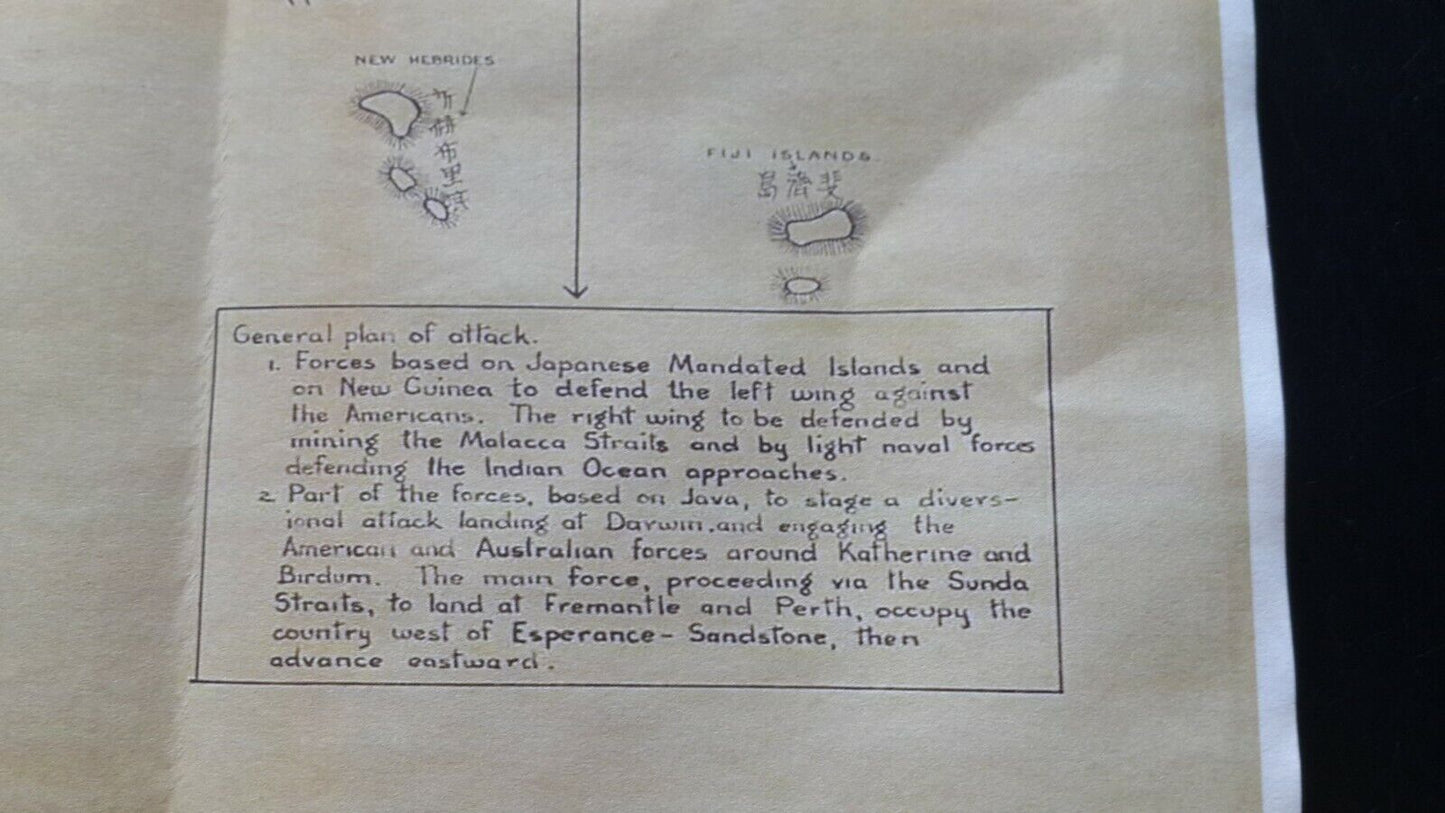 NEW HEBRIDES
布
里
FIJI ISLANDS.
島濟斐
General plan of attack.
1. Forces based on Japanese Mandated Islands and
on New Guinea to defend the left wing against
the Americans. The right wing to be defended by
mining the Malacca Straits and by light naval forces
defending the Indian Ocean approaches.
2. Part of the forces, based on Java, to stage a divers-
ional attack landing at Darwin, and engaging the
American and Australian forces around Katherine and
Birdum. The main force, proceeding via the Sunda
Straits, to land at Fremantle and Perth, occupy the
country west of Esperance - Sandstone, then
advance eastward.